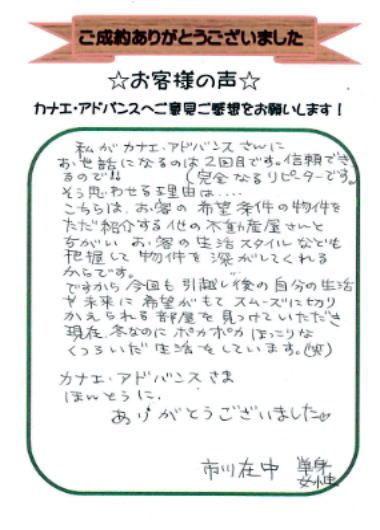 ご成約ありがとうございました
☆お客様の声☆
カナエ・アドバンスへご意見ご感想をお願いします！
私がカナエ・アドバンスさんに
お世話になるのは2回目です。信頼でき
るので!! (完全なるリピーターです。
そう思わせる理由は....
こちらは、お客の希望条件の物件を
ただ紹介する他の不動産屋さんと
ちがい お客の生活スタイルなども
把握して物件を深がしてくれる
からです。
ですから今回も引越し後の自分の生活
や未来に希望がもてスムーズに切り
かえられる部屋を見つけていただき
現在、冬なのにポカポカほっこりな
くつろいだ生活をしています。(笑)
カナエ・アドバンスさま
ほんとうに、
ありがとうございました♡
市川在中 単身
女性